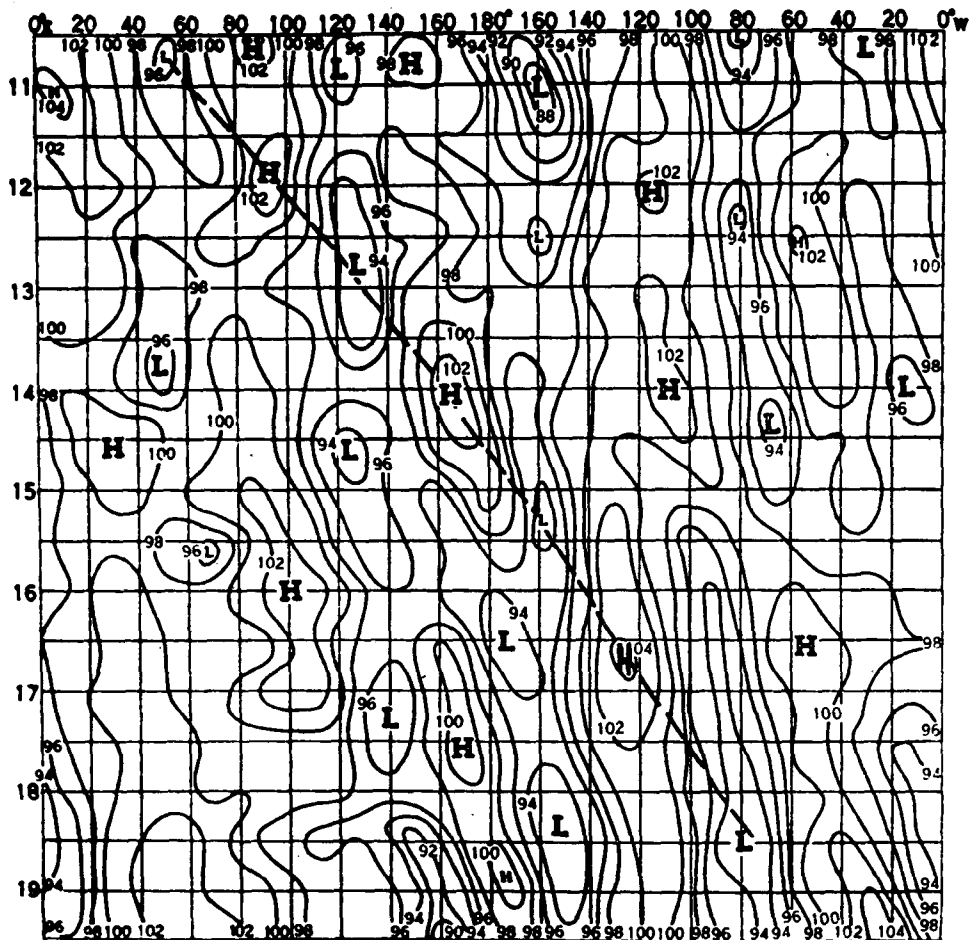 0°E 20 40 60 80 100 120 140 160 180° 160 140 120 100 80 60 40 20 0°W
102 100 98 98 100 H 100 98 96 96 94 92 94 96 98 100 98 96 98 L 98 102
L 96 102 L 98 H 90 94
11 H 104 L 88
102
12 H 102 96 102 H 100
L L 94
L 94 H 102 100
13 98 98 96
100 96 100
L 102 102 98
14 98 H H L 96
100 L
H 100 94 L 96 94
15
L
98 96 L 102
16 H
94
L H 98
H 04
17 96 L 100 102 100 96
H
96
94 94
18 94
L L
92 100
H
19 94 94
96 98 100 102 100 98 96 94 90 96 98 96 98 100 100 98 96 94 94 96 100 102 104 98